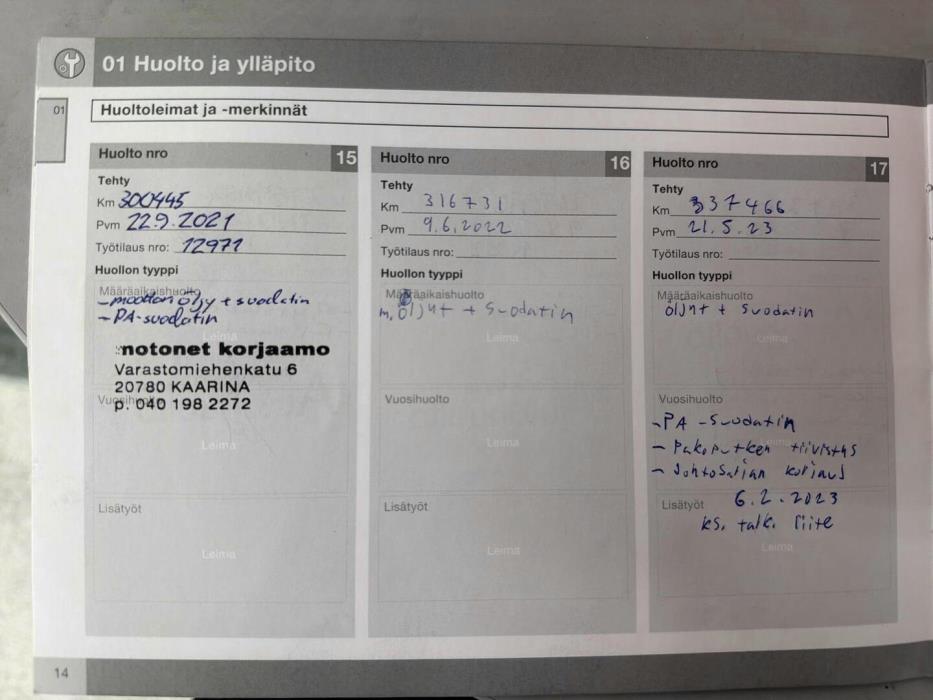 01 Huolto ja ylläpito
01
Huoltoleimat ja -merkinnät
Huolto nro 15
Tehty
Km 300445
Pvm 22.9.2021
Työtilaus nro: 12971
Huollon tyyppi
Määräaikaishuolto
- moottoriöljy + suodatin
- PA-suodatin
Leima
motonet korjaamo
Varastomiehenkatu 6
20780 KAARINA
Vuosihuolto
p. 040 198 2272
Leima
Lisätyöt
Leima
Huolto nro 16
Tehty
Km 316731
Pvm 9.6.2022
Työtilaus nro:
Huollon tyyppi
Määräaikaishuolto
m. öljyt + suodatin
Leima
Vuosihuolto
Leima
Lisätyöt
Leima
Huolto nro 17
Tehty
Km 337466
Pvm 21.5.23
Työtilaus nro:
Huollon tyyppi
Määräaikaishuolto
öljyt + suodatin
Leima
Vuosihuolto
- PA -suodatin
- Pakoputken tiivistys
Leima
- Johtosarjan korjaus
Lisätyöt
6.2.2023
ks. talk. liite
Leima
14